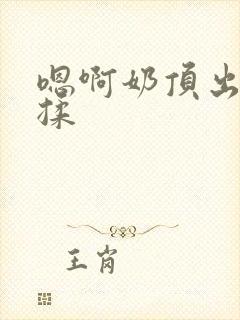 嗯啊奶頂出
揉
王肖